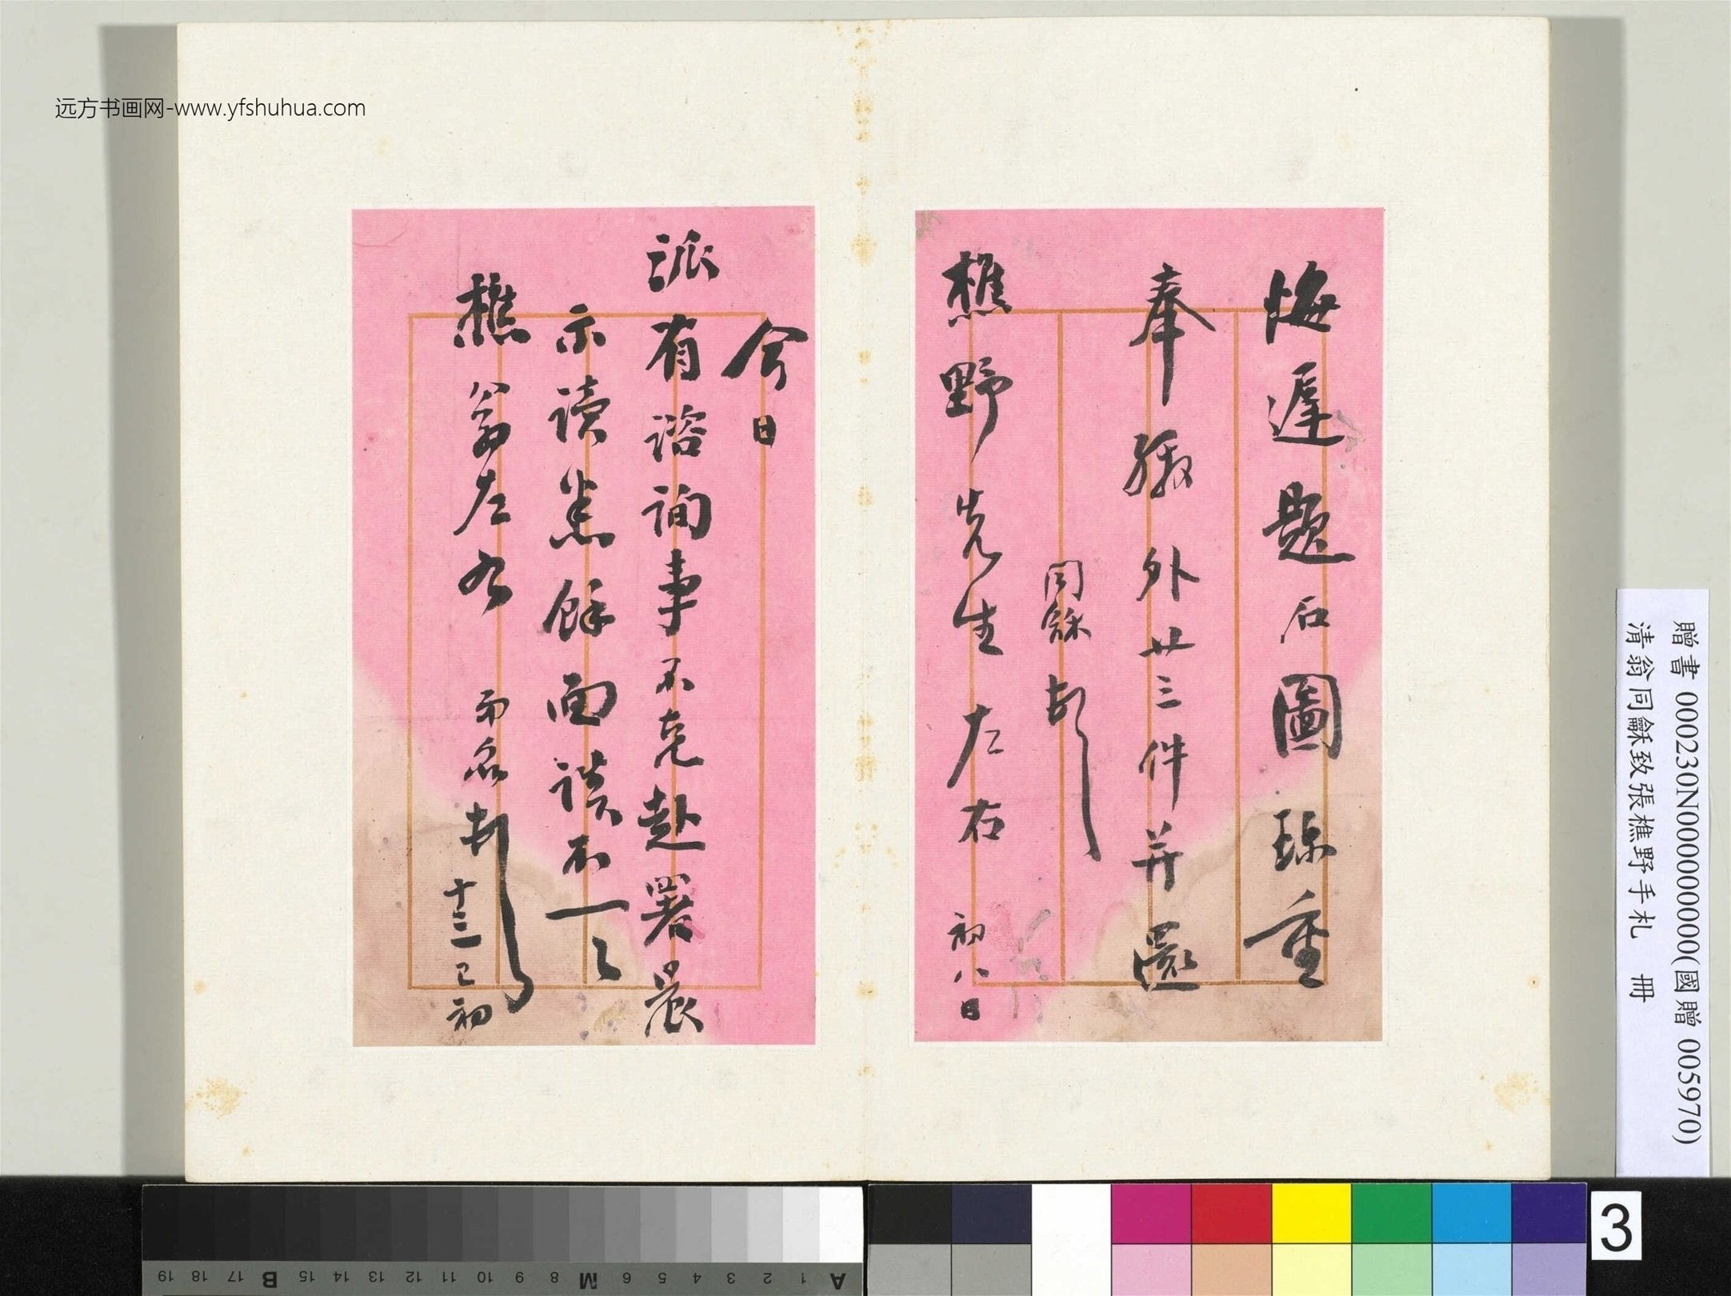 远方书画网-www.yfshuhua.com
悔遲題石圖珍重
奉繳外廿三件并還
同龢頓
樵野先生左右
初八日
今日
派有諮詢事不克赴署晨
示讀悉餘面談不一一
樵翁左右
而名頓
十三巳初
贈書 000230N000000000(國贈 005970)
清翁同龢致張樵野手札 冊
3
A 1 2 3 4 5 6 M 8 9 10 11 12 13 14 15 B 17 18 19